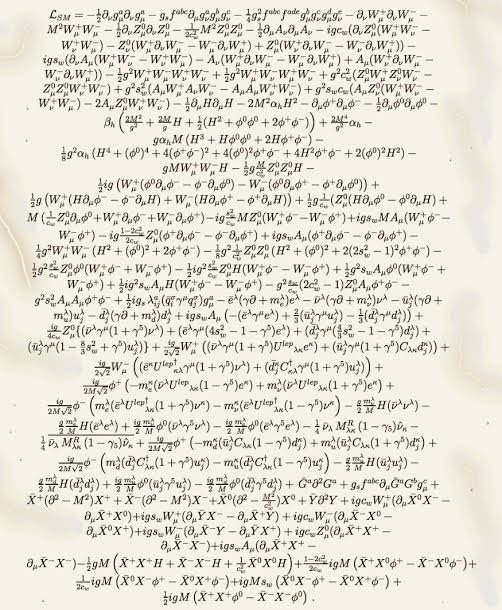 $\mathcal{L}_{SM} = -\frac{1}{2}\partial_\nu g^a_\mu \partial_\nu g^a_\mu - g_s f^{abc}\partial_\mu g^a_\nu g^b_\mu g^c_\nu - \frac{1}{4}g^2_s f^{abc}f^{ade} g^b_\mu g^c_\nu g^d_\mu g^e_\nu - \partial_\nu W^+_\mu \partial_\nu W^-_\mu -$
$M^2 W^+_\mu W^-_\mu - \frac{1}{2}\partial_\nu Z^0_\mu \partial_\nu Z^0_\mu - \frac{1}{2c^2_w} M^2 Z^0_\mu Z^0_\mu - \frac{1}{2}\partial_\mu A_\nu \partial_\mu A_\nu - igc_w(\partial_\nu Z^0_\mu(W^+_\mu W^-_\nu -$
$W^+_\nu W^-_\mu) - Z^0_\nu(W^+_\mu \partial_\nu W^-_\mu - W^-_\mu \partial_\nu W^+_\mu) + Z^0_\mu(W^+_\nu \partial_\nu W^-_\mu - W^-_\nu \partial_\nu W^+_\mu)) -$
$igs_w(\partial_\nu A_\mu(W^+_\mu W^-_\nu - W^+_\nu W^-_\mu) - A_\nu(W^+_\mu \partial_\nu W^-_\mu - W^-_\mu \partial_\nu W^+_\mu) + A_\mu(W^+_\nu \partial_\nu W^-_\mu -$
$W^-_\nu \partial_\nu W^+_\mu)) - \frac{1}{2}g^2 W^+_\mu W^-_\mu W^+_\nu W^-_\nu + \frac{1}{2}g^2 W^+_\mu W^-_\nu W^+_\mu W^-_\nu + g^2 c^2_w(Z^0_\mu W^+_\mu Z^0_\nu W^-_\nu -$
$Z^0_\mu Z^0_\mu W^+_\nu W^-_\nu) + g^2 s^2_w(A_\mu W^+_\mu A_\nu W^-_\nu - A_\mu A_\mu W^+_\nu W^-_\nu) + g^2 s_w c_w(A_\mu Z^0_\nu(W^+_\mu W^-_\nu -$
$W^+_\nu W^-_\mu) - 2A_\mu Z^0_\mu W^+_\nu W^-_\nu) - \frac{1}{2}\partial_\mu H \partial_\mu H - 2M^2 \alpha_h H^2 - \partial_\mu \phi^+ \partial_\mu \phi^- - \frac{1}{2}\partial_\mu \phi^0 \partial_\mu \phi^0 -$
$\beta_h \left( \frac{2M^2}{g^2} + \frac{2M}{g}H + \frac{1}{2}(H^2 + \phi^0\phi^0 + 2\phi^+\phi^-) \right) + \frac{2M^4}{g^2}\alpha_h -$
$g\alpha_h M \left( H^3 + H\phi^0\phi^0 + 2H\phi^+\phi^- \right) -$
$\frac{1}{8}g^2\alpha_h \left( H^4 + (\phi^0)^4 + 4(\phi^+\phi^-)^2 + 4(\phi^0)^2\phi^+\phi^- + 4H^2\phi^+\phi^- + 2(\phi^0)^2H^2 \right) -$
$gMW^+_\mu W^-_\mu H - \frac{1}{2}g\frac{M}{c^2_w}Z^0_\mu Z^0_\mu H -$
$\frac{1}{2}ig \left( W^+_\mu(\phi^0\partial_\mu\phi^- - \phi^-\partial_\mu\phi^0) - W^-_\mu(\phi^0\partial_\mu\phi^+ - \phi^+\partial_\mu\phi^0) \right) +$
$\frac{1}{2}g \left( W^+_\mu(H\partial_\mu\phi^- - \phi^-\partial_\mu H) + W^-_\mu(H\partial_\mu\phi^+ - \phi^+\partial_\mu H) \right) + \frac{1}{2}g\frac{1}{c_w}(Z^0_\mu(H\partial_\mu\phi^0 - \phi^0\partial_\mu H) +$
$M \left( \frac{1}{c_w}Z^0_\mu\partial_\mu\phi^0 + W^+_\mu\partial_\mu\phi^- + W^-_\mu\partial_\mu\phi^+ \right) - ig\frac{s^2_w}{c_w}MZ^0_\mu(W^+_\mu\phi^- - W^-_\mu\phi^+) + igs_w MA_\mu(W^+_\mu\phi^- -$
$W^-_\mu\phi^+) - ig\frac{1-2c^2_w}{2c_w}Z^0_\mu(\phi^+\partial_\mu\phi^- - \phi^-\partial_\mu\phi^+) + igs_w A_\mu(\phi^+\partial_\mu\phi^- - \phi^-\partial_\mu\phi^+) -$
$\frac{1}{4}g^2 W^+_\mu W^-_\mu \left( H^2 + (\phi^0)^2 + 2\phi^+\phi^- \right) - \frac{1}{8}g^2\frac{1}{c^2_w}Z^0_\mu Z^0_\mu \left( H^2 + (\phi^0)^2 + 2(2s^2_w - 1)^2\phi^+\phi^- \right) -$
$\frac{1}{2}g^2\frac{s^2_w}{c_w}Z^0_\mu\phi^0(W^+_\mu\phi^- + W^-_\mu\phi^+) - \frac{1}{2}ig^2\frac{s^2_w}{c_w}Z^0_\mu H(W^+_\mu\phi^- - W^-_\mu\phi^+) + \frac{1}{2}g^2 s_w A_\mu\phi^0(W^+_\mu\phi^- +$
$W^-_\mu\phi^+) + \frac{1}{2}ig^2 s_w A_\mu H(W^+_\mu\phi^- - W^-_\mu\phi^+) - g^2\frac{s_w}{c_w}(2c^2_w - 1)Z^0_\mu A_\mu\phi^+\phi^- -$
$g^2 s^2_w A_\mu A_\mu\phi^+\phi^- + \frac{1}{2}ig_s\lambda^a_{ij}(\bar{q}^\sigma_i\gamma^\mu q^\sigma_j)g^a_\mu - \bar{e}^\lambda(\gamma\partial + m^\lambda_e)e^\lambda - \bar{\nu}^\lambda(\gamma\partial + m^\lambda_\nu)\nu^\lambda - \bar{u}^\lambda_j(\gamma\partial +$
$m^\lambda_u)u^\lambda_j - \bar{d}^\lambda_j(\gamma\partial + m^\lambda_d)d^\lambda_j + igs_w A_\mu \left( -(\bar{e}^\lambda\gamma^\mu e^\lambda) + \frac{2}{3}(\bar{u}^\lambda_j\gamma^\mu u^\lambda_j) - \frac{1}{3}(\bar{d}^\lambda_j\gamma^\mu d^\lambda_j) \right) +$
$\frac{ig}{4c_w}Z^0_\mu\{(\bar{\nu}^\lambda\gamma^\mu(1+\gamma^5)\nu^\lambda) + (\bar{e}^\lambda\gamma^\mu(4s^2_w - 1 - \gamma^5)e^\lambda) + (\bar{d}^\lambda_j\gamma^\mu(\frac{4}{3}s^2_w - 1 - \gamma^5)d^\lambda_j) +$
$(\bar{u}^\lambda_j\gamma^\mu(1 - \frac{8}{3}s^2_w + \gamma^5)u^\lambda_j)\} + \frac{ig}{2\sqrt{2}}W^+_\mu \left( (\bar{\nu}^\lambda\gamma^\mu(1+\gamma^5)U^{lep}{}_{\lambda\kappa}e^\kappa) + (\bar{u}^\lambda_j\gamma^\mu(1+\gamma^5)C_{\lambda\kappa}d^\kappa_j) \right) +$
$\frac{ig}{2\sqrt{2}}W^-_\mu \left( (\bar{e}^\kappa U^{lep\dagger}{}_{\kappa\lambda}\gamma^\mu(1+\gamma^5)\nu^\lambda) + (\bar{d}^\kappa_j C^\dagger_{\kappa\lambda}\gamma^\mu(1+\gamma^5)u^\lambda_j) \right) +$
$\frac{ig}{2M\sqrt{2}}\phi^+ \left( -m^\kappa_e(\bar{\nu}^\lambda U^{lep}{}_{\lambda\kappa}(1-\gamma^5)e^\kappa) + m^\lambda_\nu(\bar{\nu}^\lambda U^{lep}{}_{\lambda\kappa}(1+\gamma^5)e^\kappa) +$
$\frac{ig}{2M\sqrt{2}}\phi^- \left( m^\lambda_e(\bar{e}^\lambda U^{lep\dagger}{}_{\lambda\kappa}(1+\gamma^5)\nu^\kappa) - m^\kappa_\nu(\bar{e}^\lambda U^{lep\dagger}{}_{\lambda\kappa}(1-\gamma^5)\nu^\kappa \right) - \frac{g}{2}\frac{m^\lambda_\nu}{M}H(\bar{\nu}^\lambda\nu^\lambda) -$
$\frac{g}{2}\frac{m^\lambda_e}{M}H(\bar{e}^\lambda e^\lambda) + \frac{ig}{2}\frac{m^\lambda_\nu}{M}\phi^0(\bar{\nu}^\lambda\gamma^5\nu^\lambda) - \frac{ig}{2}\frac{m^\lambda_e}{M}\phi^0(\bar{e}^\lambda\gamma^5 e^\lambda) - \frac{1}{4}\bar{\nu}_\lambda M^R_{\lambda\kappa}(1-\gamma_5)\hat{\nu}_\kappa -$
$\frac{1}{4}\overline{\bar{\nu}_\lambda M^R_{\lambda\kappa}(1-\gamma_5)\hat{\nu}_\kappa} + \frac{ig}{2M\sqrt{2}}\phi^+ \left( -m^\kappa_d(\bar{u}^\lambda_j C_{\lambda\kappa}(1-\gamma^5)d^\kappa_j) + m^\lambda_u(\bar{u}^\lambda_j C_{\lambda\kappa}(1+\gamma^5)d^\kappa_j \right) +$
$\frac{ig}{2M\sqrt{2}}\phi^- \left( m^\lambda_d(\bar{d}^\lambda_j C^\dagger_{\lambda\kappa}(1+\gamma^5)u^\kappa_j) - m^\kappa_u(\bar{d}^\lambda_j C^\dagger_{\lambda\kappa}(1-\gamma^5)u^\kappa_j \right) - \frac{g}{2}\frac{m^\lambda_u}{M}H(\bar{u}^\lambda_j u^\lambda_j) -$
$\frac{g}{2}\frac{m^\lambda_d}{M}H(\bar{d}^\lambda_j d^\lambda_j) + \frac{ig}{2}\frac{m^\lambda_u}{M}\phi^0(\bar{u}^\lambda_j\gamma^5 u^\lambda_j) - \frac{ig}{2}\frac{m^\lambda_d}{M}\phi^0(\bar{d}^\lambda_j\gamma^5 d^\lambda_j) + \bar{G}^a\partial^2 G^a + g_s f^{abc}\partial_\mu\bar{G}^a G^b g^c_\mu +$
$\bar{X}^+(\partial^2 - M^2)X^+ + \bar{X}^-(\partial^2 - M^2)X^- + \bar{X}^0(\partial^2 - \frac{M^2}{c^2_w})X^0 + \bar{Y}\partial^2 Y + igc_w W^+_\mu(\partial_\mu\bar{X}^0 X^- -$
$\partial_\mu\bar{X}^+ X^0) + igs_w W^+_\mu(\partial_\mu\bar{Y}X^- - \partial_\mu\bar{X}^+ Y) + igc_w W^-_\mu(\partial_\mu\bar{X}^- X^0 -$
$\partial_\mu\bar{X}^0 X^+) + igs_w W^-_\mu(\partial_\mu\bar{X}^- Y - \partial_\mu\bar{Y}X^+) + igc_w Z^0_\mu(\partial_\mu\bar{X}^+ X^+ -$
$\partial_\mu\bar{X}^- X^-) + igs_w A_\mu(\partial_\mu\bar{X}^+ X^+ -$
$\partial_\mu\bar{X}^- X^-) - \frac{1}{2}gM \left( \bar{X}^+ X^+ H + \bar{X}^- X^- H + \frac{1}{c^2_w}\bar{X}^0 X^0 H \right) + \frac{1-2c^2_w}{2c_w}igM \left( \bar{X}^+ X^0\phi^+ - \bar{X}^- X^0\phi^- \right) +$
$\frac{1}{2c_w}igM \left( \bar{X}^0 X^-\phi^+ - \bar{X}^0 X^+\phi^- \right) + igMs_w \left( \bar{X}^0 X^-\phi^+ - \bar{X}^0 X^+\phi^- \right) +$
$\frac{1}{2}igM \left( \bar{X}^+ X^+\phi^0 - \bar{X}^- X^-\phi^0 \right) .$